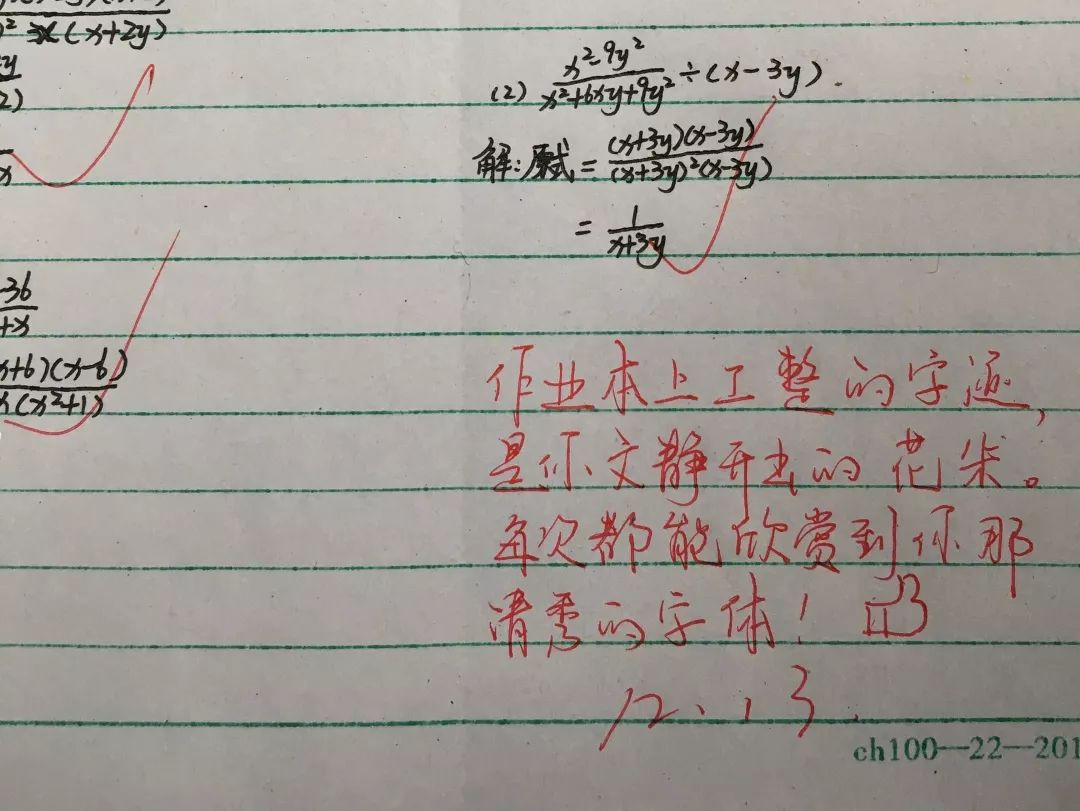 ² x(x+2y)
y
2)
x
-36
+x
x+6)(x-6)
x(x²+1)
(2) x²-9y² / x²+6xy+9y² ÷(x-3y).
解:原式=(x+3y)(x-3y) / (x+3y)²(x-3y)
= 1 / x+3y
作业本上工整的字迹,
是你文静开出的花朵。
每次都能欣赏到你那
清秀的字体!
12.13
ch100—22—201